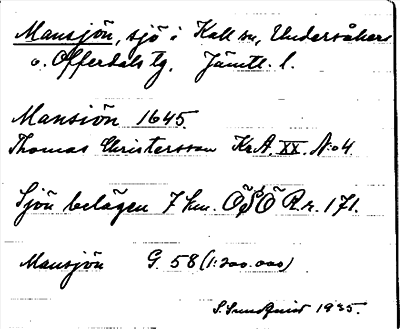 Mansjön, sjö i Kall sn, Undersåkers
o. Offerdals tg. Jämtl. l.
Mansiön 1645.
Thomas Christersson KrA. XX. N:o 4.
Sjön belägen 7 km. ÖSÖ R.r. 171.
Mansjön G. 58 (1:200.000)
S. Sundquist 1935.